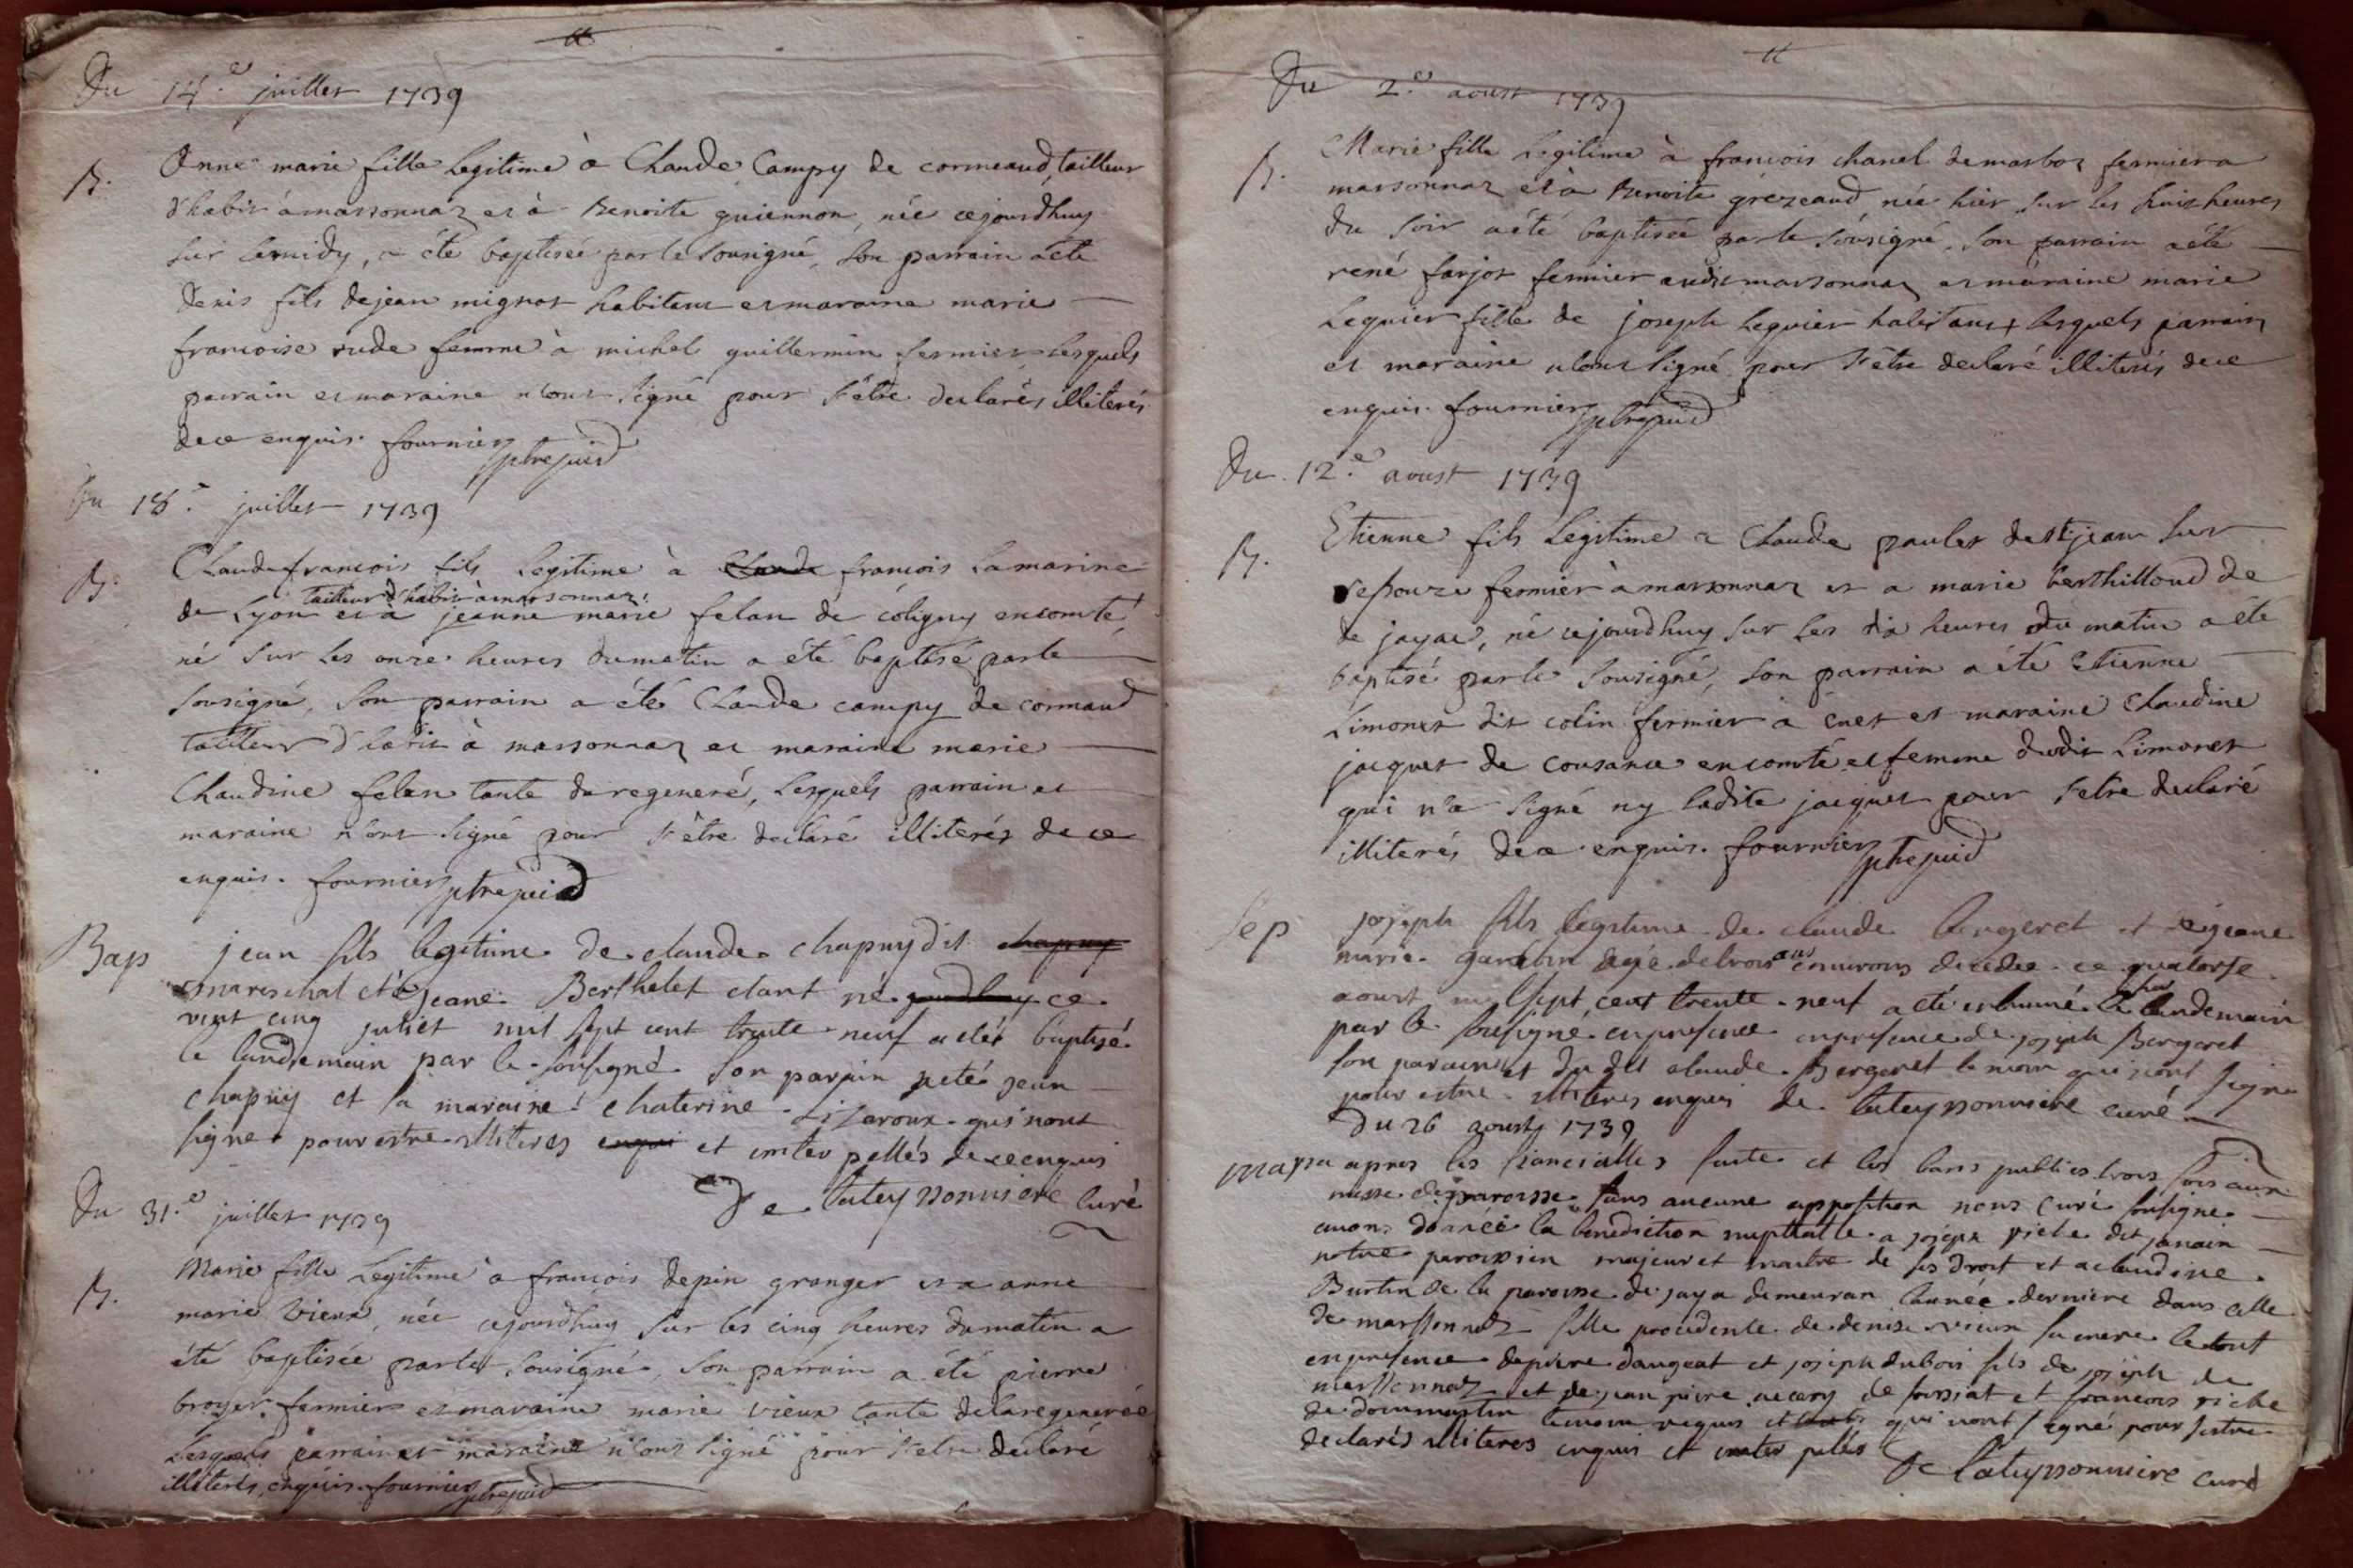 Du 14.e juillet 1739
B. Anne marie fille legitime à Claude Campy de cormeaud, tailleur
d'habit à marsonnaz et à Benoite guiennon, née cejourdhuy
sur le midy, a été baptisée par le sousigné, son parrain a été
denis fils de jean mignot habitant et maraine marie
francoise rude femme à michel guillermin fermier lesquels
parrain et maraine n'ont signé pour s'être declarés illiterés
de ce enquis. fournier ptre
Du 18.e juillet 1739
B. Claude francois fils legitime à Claude francois Lamarine
tailleur d'habit à marsonnaz
de Lyon et à jeanne marie felan de coligny en comté,
né sur les onze heures du matin a été baptisé par le
sousigné, son parrain a été Claude campy de cormaud
tailleur d'habit à marsonnaz et maraine marie
Claudine felan tante du regeneré, lesquels parrain et
maraine n'ont signé pour s'être declaré illiterés de ce
enquis. fournier ptre
Bap jean fils legitime de claude chapuy dit chapuy
mareschal et à Jeane Berthelet etant né jourdhuy ce
vint cinq juliet mil sept cent trente neuf a etés baptisé
le landemain par le sousigné son parain eté jean
chapuy et sa maraine chaterine Lizaroux qui n'ont
signe pour estre illiteres enqui et inter pellés de ce enquis
De lateyssonniere curé
Du 31.e juillet 1739
B. Marie fille legitime à francois depin granger et a anne
marie vieux, née cejourdhuy sur les cinq heures du matin a
été baptisée par le sousigné, son parrain a été pierre
broyer fermier et maraine marie vieux tante de la regenerée
lesquels parrain et maraine n'ont signé pour s'etre declaré
illiterés, enquis. fournier ptre
Du 2.e aoust 1739
B. Marie fille legitime à francois chanel de marboz fermier a
marsonnaz et à Benoite grézeaud née hier sur les huit heures
du soir a été baptisée par le sousigné, son parrain a été
rené farjot fermier audit marsonnaz et maraine marie
Lequier fille de joseph Lequier habitant lesquels parrain
et maraine n'ont signé pour s'être declaré illiterés de ce
enquis. fournier ptre
Du 12.e aoust 1739
B. Etienne fils legitime a Claude paulet de st jean sur
repouze fermier à marsonnaz et a marie berthilloud de
de jayac, né cejourdhuy sur les dix heures du matin a été
baptisé par le sousigné, son parrain a été Etienne
Limonet dit colin fermier à cuet et maraine Claudine
jacquet de cousance en comté et femme dudit Limonet
qui n'a signé ny ladite jacquet pour s'etre declaré
illiterés de ce enquis. fournier ptre
Sep joseph fils legitime de claude bergeret et jeane
marie agé de trois ans environs decedee ce quatorse
aoust mil sept cent trente neuf a eté inhumé le landemain
par le sousigne en presence en presence de joseph Bergeret
son parain et du dit claude Bergeret qui n'ont signe
pour estre illiteres enquis de lateyssonniere curé
Du 26 aoust 1739
apres les fiancialles faite et les bans publies trois fois aux
messe de paroisse sans aucune apposition nous curé sousigne
avons donnée la benediction nuptialle a joseph riche dit janain
notre paroissien majeur et maitre de ses droit et a claudine
Burtin de la paroisse de jaya demeuran l'année derniere dans celle
de marssonnaz fille de denise vieux sa mere le tout
en presence de piere daugeat et joseph dubois fils de joseph de
marssonnaz et de jean piere de foissiat et francois riche
de dommartin temoin requis et qui n'ont signé pour s'estre
declarés illiteres enquis et inter pellés De lateyssonniere curé